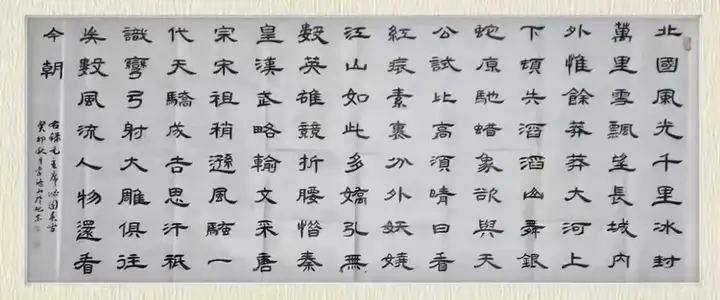 北國風光千里冰封
萬里雪飄望長城內
外惟餘莽莽大河上
下頓失滔滔山舞銀
蛇原馳蜡象欲與天
公試比高須晴日看
紅裝素裹分外妖嬈
江山如此多嬌引無
數英雄競折腰惜秦
皇漢武略輸文采唐
宗宋祖稍遜風騷一
代天驕成吉思汗祇
識彎弓射大雕俱往
矣數風流人物還看
今朝
右錄毛主席沁園春雪
癸卯秋月